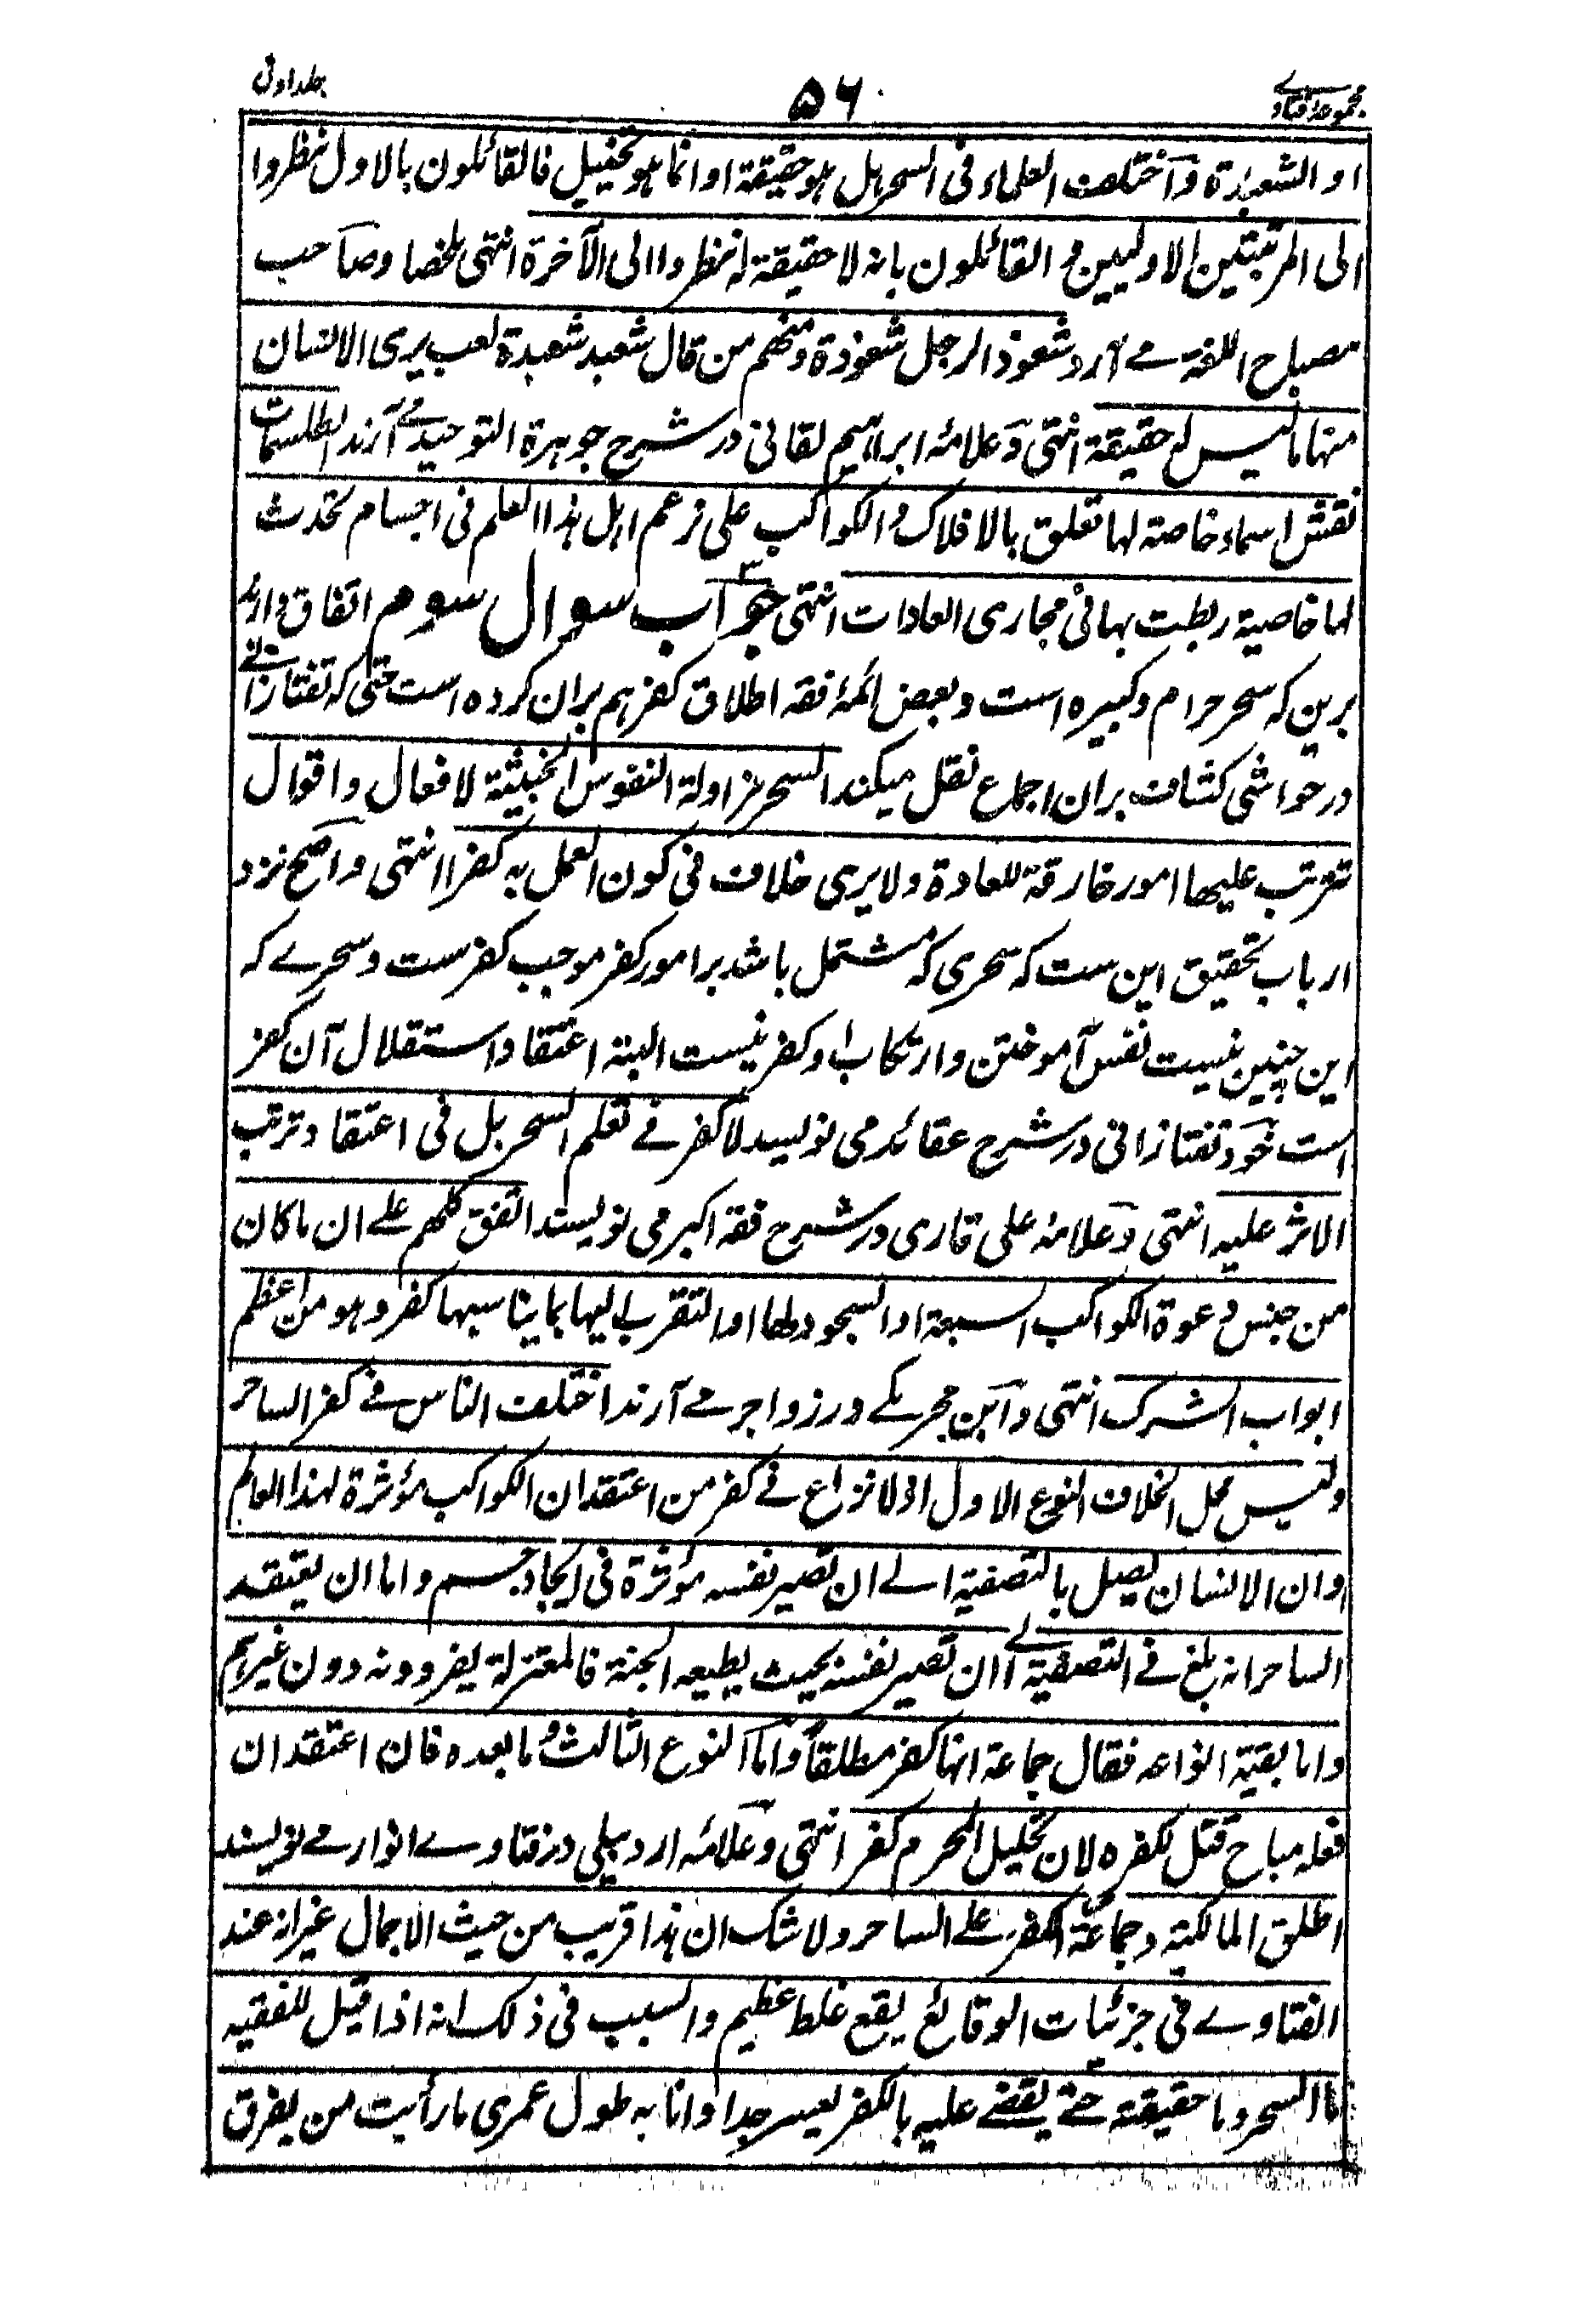 مجموعہ فتاوے ۵۶ جلد اول
او الشعبذة واختلف العلماء فی السحر ہل ہو حقیقة او انما ہو تخییل فالقائلون بالاول نظروا
الی المرتبتین الاولیین و القائلون بانہ لا حقیقة لہ نظروا الی الآخرة انتہی ملخصا وصاحب
مصباح اللغة مے آرد شعوذ الرجل شعوذة ومنھم من قال شعبد شعبدة لعب یری الانسان
منہا ما لیس لہ حقیقة انتہی وعلامۂ ابراہیم لقانی در شرح جوہرة التوحید مے آرند الطلسمات
نقش اسماء خاصة لہا تعلق بالافلاک و الکواکب علی زعم اہل ہذا العلم فی اجسام تحدث
لہا خاصیة ربطت بہا فی مجاری العادات انتہی جواب سوال سوم اتفاق دارند
برین کہ سحر حرام وکبیرہ است وبعض ائمۂ فقہ اطلاق کفر ہم بران کردہ است حتی کہ تفتازانے
در حواشی کشاف بران اجماع نقل میکند السحر مزاولة النفوس الخبیثة لافعال واقوال
تترتب علیھا امور خارقة للعادة ولا یری خلاف فی کون العمل بہ کفرا انتہی واصح نزد
ارباب تحقیق این ست کہ سحری کہ مشتمل باشد بر امور کفر موجب کفرست وسحرے کہ
این چنین نیست نفس آموختن وارتکاب او کفر نیست البتہ اعتقاد استقلال آن کفر
است خود تفتازانی در شرح عقائد می نویسد لا کفر فے تعلم السحر بل فی اعتقاد ترتب
الاثر علیہ انتہی وعلامۂ علی قاری در شرح فقہ اکبر می نویسند اتفق کلھم علے ان ما کان
من جنس دعوة الکواکب السبعة او السجود لھا او التقرب الیہا بما یناسبہا کفر وہو من اعظم
ابواب الشرک انتہی وابن حجر مکے در زواجر مے آرند اختلف الناس فے کفر الساحر
ولیس محل الخلاف النوع الاول اذ لا نزاع فے کفر من اعتقد ان الکواکب مؤثرة لہذا العالم
او ان الانسان یصل بالتصفیة الے ان تصیر نفسہ مؤثرة فی ایجاد جسم واما ان یعتقد
الساحر انہ بلغ فے التصفیة الے ان تصیر نفسہ بحیث یطیعہ الجنة فالمعتزلة یفرودنہ دون غیرہم
واما بقیة انواعہ فقال جماعة انہا کفر مطلقا واما النوع الثالث وما بعدہ فان اعتقد ان
فعلہ مباح قتل لکفرہ لان تحلیل المحرم کفر انتہی وعلامۂ اردبیلی در فتاوے انوار مے نویسند
اطلق المالکیة وجماعة الکفر علے الساحر ولا شک ان ہذا قریب من حیث الاجمال غیر انہ عند
الفتاوے فی جزئیات الوقائع یقع غلط عظیم والسبب فی ذلک انہ اذا قیل للفقیہ
ما السحر وما حقیقتہ حتے یقضے علیہ بالکفر یعسر جدا وانا بہ طول عمری ما رأیت من یفرق